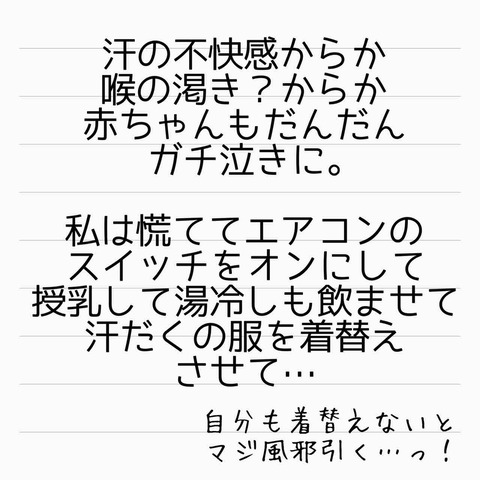 汗の不快感からか
喉の渇き？からか
赤ちゃんもだんだん
ガチ泣きに。
私は慌ててエアコンの
スイッチをオンにして
授乳して湯冷しも飲ませて
汗だくの服を着替え
させて…
自分も着替えないと
マジ風邪引く…っ！